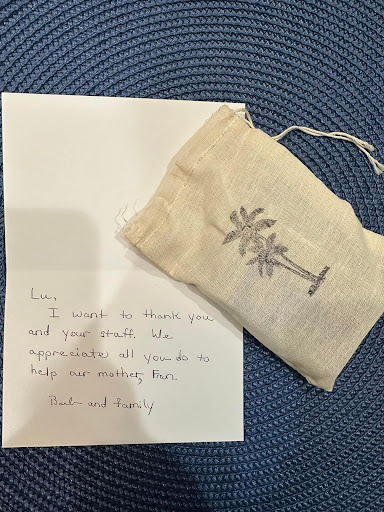 Lu,
I want to thank you
and your staff. We
appreciate all you do to
help our mother, Fran.
Barb and family